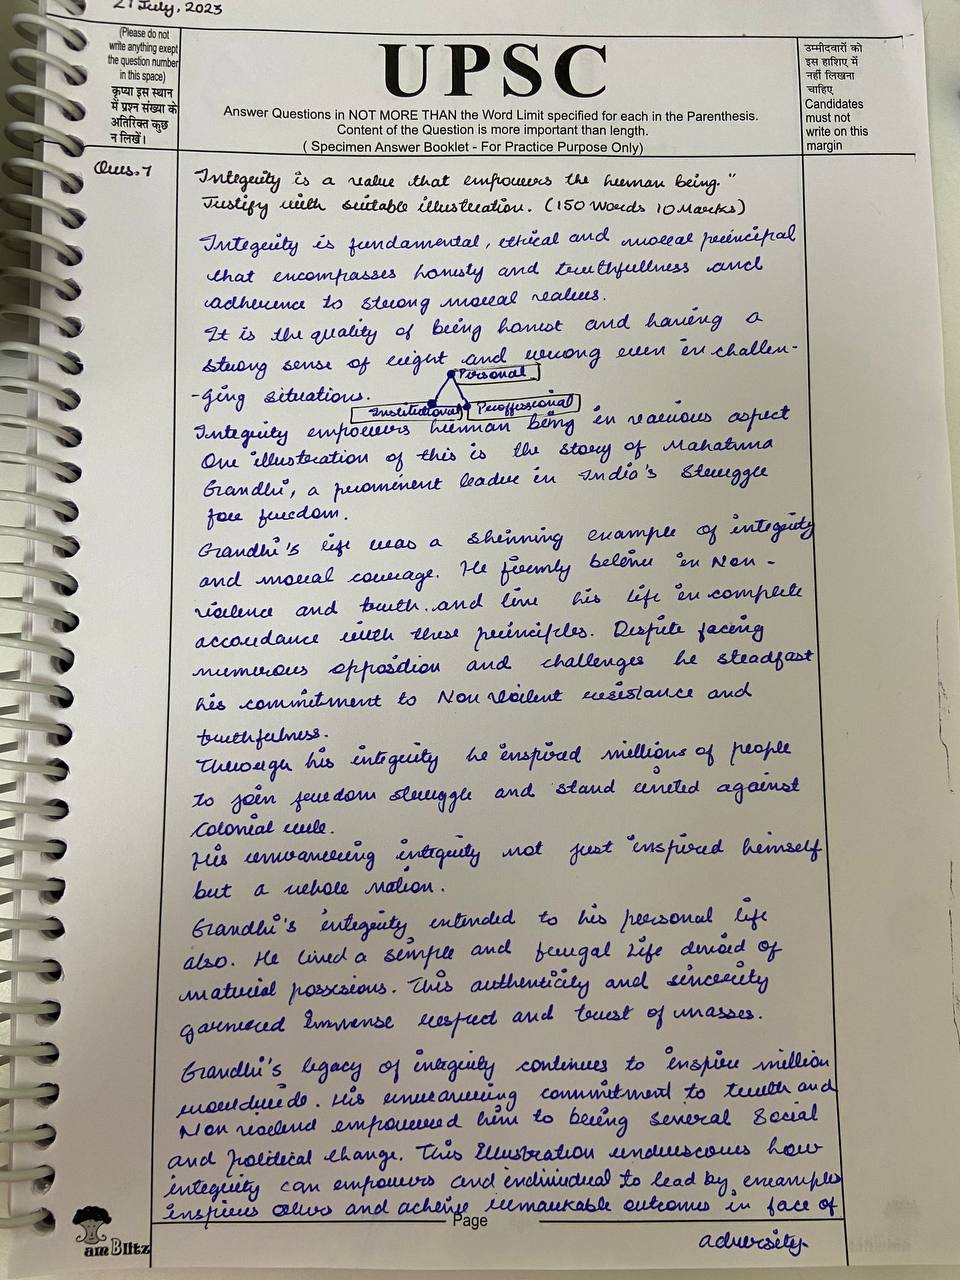 21 July, 2023
(Please do not
write anything exept
the question number
in this space)
कृप्या इस स्थान
में प्रश्न संख्या के
अतिरिक्त कुछ
न लिखें।
UPSC
Answer Questions in NOT MORE THAN the Word Limit specified for each in the Parenthesis.
Content of the Question is more important than length.
( Specimen Answer Booklet - For Practice Purpose Only)
उम्मीदवारों को
इस हाशिए में
नहीं लिखना
चाहिए
Candidates
must not
write on this
margin
Ques.7
Integrity is a value that empowers the human being."
Justify with suitable illustration. (150 Words 10 Marks)
Integrity is fundamental, ethical and moral principal
that encompasses honsty and truthfullness and
adherence to strong moral values.
It is the quality of being honest and having a
strong sense of right and wrong even in challen-
-ging situations.
Personal
Institutional
Proffessional
Integrity empowers human being in various aspect
One illustration of this is the story of Mahatma
Gandhi, a prominent leader in India's struggle
for freedom.
Gandhi's life was a shinning example of integrity
and moral courage. He firmly believe in Non-
violence and truth. and live his life in complete
accordance with these principles. Despite facing
numerous opposition and challenges he steadfast
his commitment to Non violent resistance and
truthfulness.
Through his integrity he inspired millions of people
to join freedom struggle and stand united against
Colonial rule.
His unwavering integrity not just inspired himself
but a whole Nation.
Gandhi's integrity extended to his personal life
also. He lived a simple and frugal life devoid of
material possesions. This authenticity and sincerity
garnered Immense respect and trust of masses.
Gandhi's legacy of integrity continues to inspire million
worldwide. His unwavering commitment to truth and
Non violend empowered him to being several social
and political change. This Illustration underscores how
integrity can empowers and individual to lead by examples
inspires others and achieve remarkable outcomes in face of
adversity.
Page
am Blitz